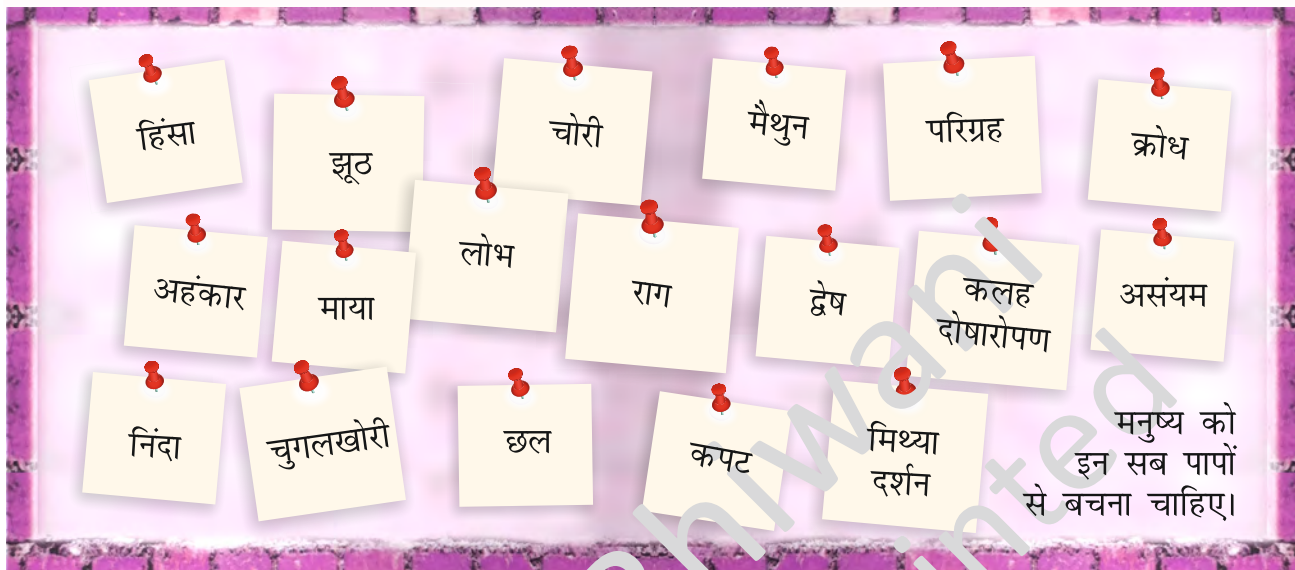 हिंसा
झूठ
चोरी
मैथुन
परिग्रह
क्रोध
अहंकार
माया
लोभ
राग
द्वेष
कलह
दोषारोपण
असंयम
निंदा
चुगलखोरी
छल
कपट
मिथ्या
दर्शन
मनुष्य को
इन सब पापों
से बचना चाहिए।